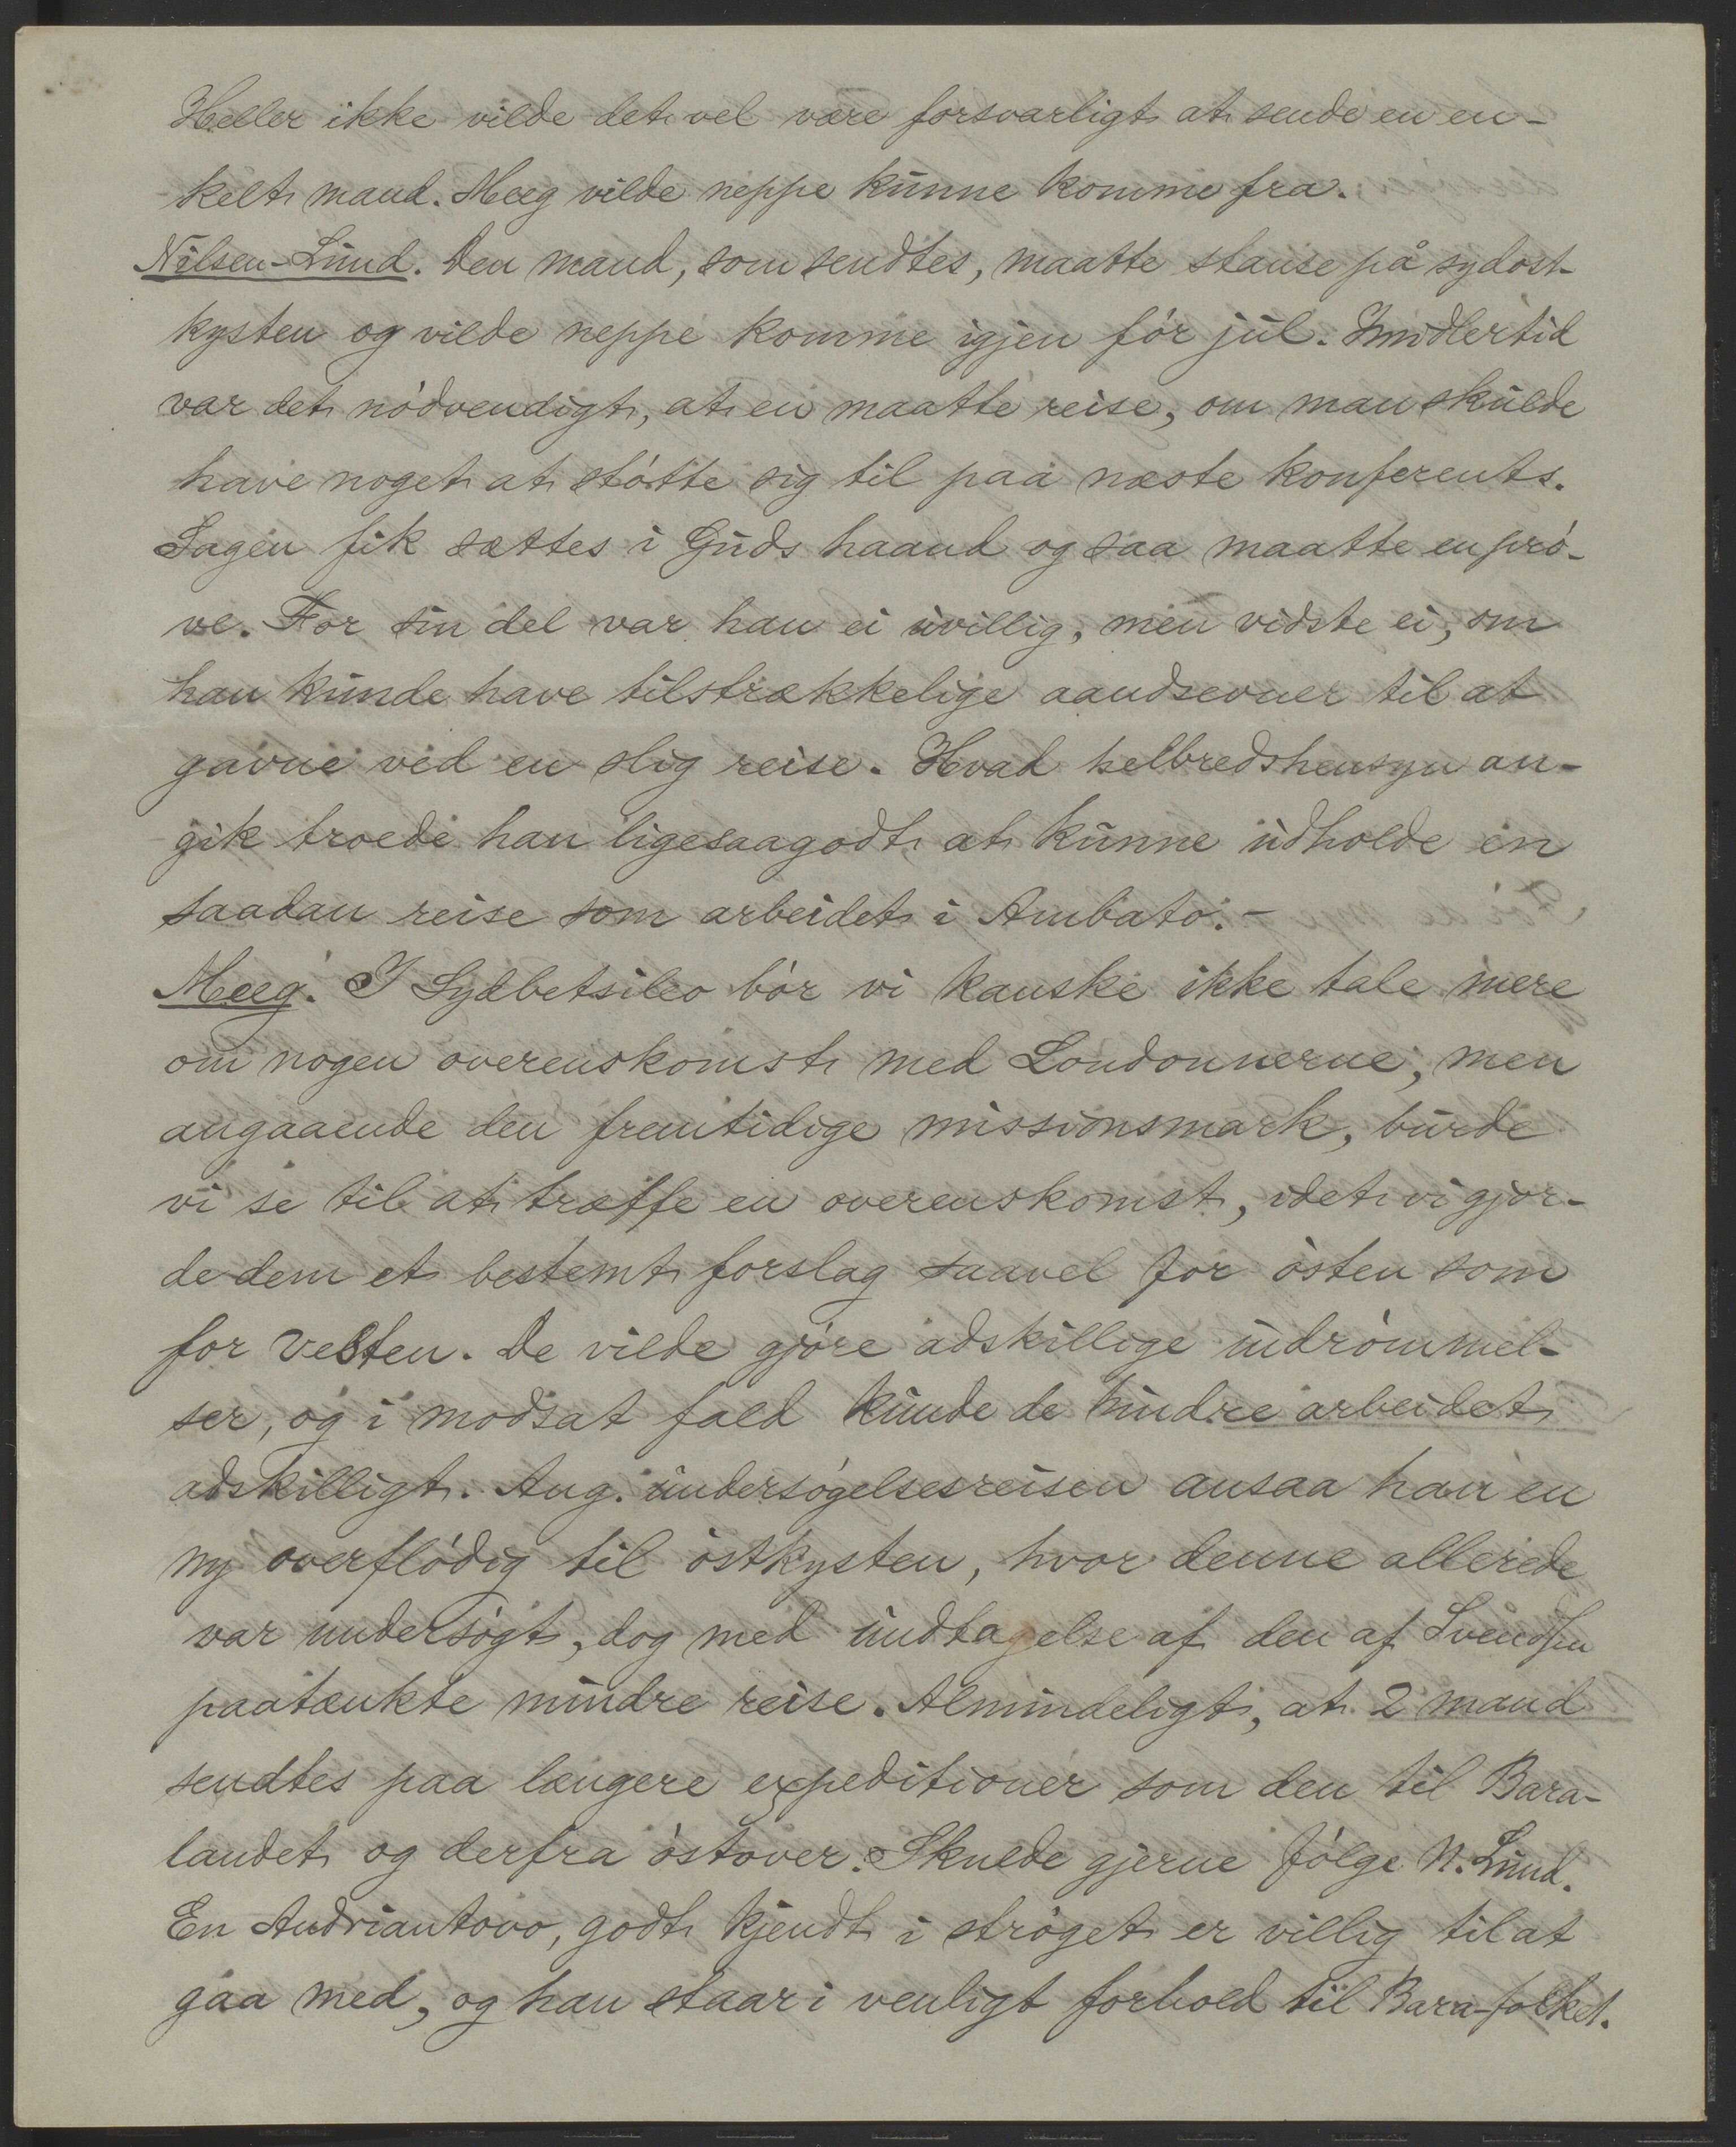 Heller ikke vilde det vel være forsvarligt at sende en en-
kelt mand. Meeg vilde neppe kunne komme fra.
Nilsen-Lund. Den mand, som sendtes, maatte stanse på sydost-
kysten og vilde neppe komme igjen før jul. Imidlertid
var det nødvendigt, at en maatte reise, om man skulde
have noget at støtte sig til paa næste konferents.
Sagen fik sættes i Guds haand og saa maatte en prø-
ve. For sin del var han ei uvillig, men vidste ei, om
han kunde have tilstrækkelige aandsevner til at
gavne ved en slig reise. Hvad helbredshensyn an-
gik troede han ligesaagodt at kunne udholde en
saadan reise som arbeidet i Ambato. -
Meeg. I Sydbetsileo bør vi kanske ikke tale mere
om nogen overenskomst med Londonnerne, men
angaaende den fremtidige missionsmark, burde
vi se til at træffe en overenskomst, idet vi gjor-
de dem et bestemt forslag saavel for østen som
for vesten. De vilde gjøre adskillige indrømmel-
ser, og i modsat fald kunde de hindre arbeidet
adskilligt. Ang. undersøgelsesreisen ansaa han en
ny overflødig til østkysten, hvor denne allerede
var undersøgt, dog med undtagelse af den af Svendsen
paatænkte mindre reise. Almindeligt, at 2 mand
sendtes paa længere expeditioner som den til Bara-
landet og derfra østover. Skulde gjerne følge N. Lund.
En Andriantovo, godt kjendt i strøget er villig til at
gaa med, og han staar i venligt forhold til Bara-folket.